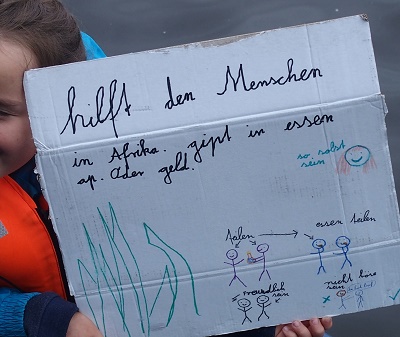 hilft den Menschen
in Afrika. gipt in essen
ap. Oder geld.
so solst
sein
teilen
essen teilen
freundlich
sein
nicht böse
sein